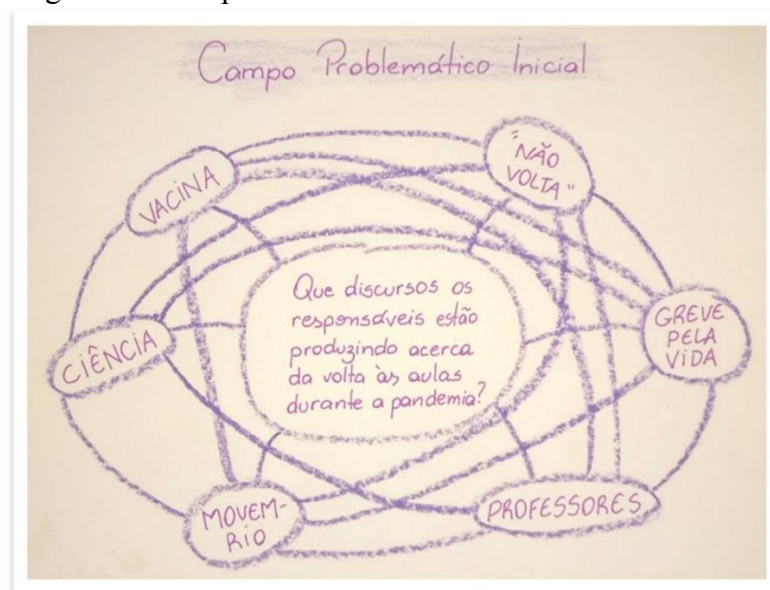 Campo Problemático Inicial
VACINA
"NÃO
VOLTA"
CIÊNCIA
Que discursos os
responsáveis estão
produzindo acerca
da volta às aulas
durante a pandemia?
GREVE
PELA
VIDA
MOVEM-
RIO
PROFESSORES